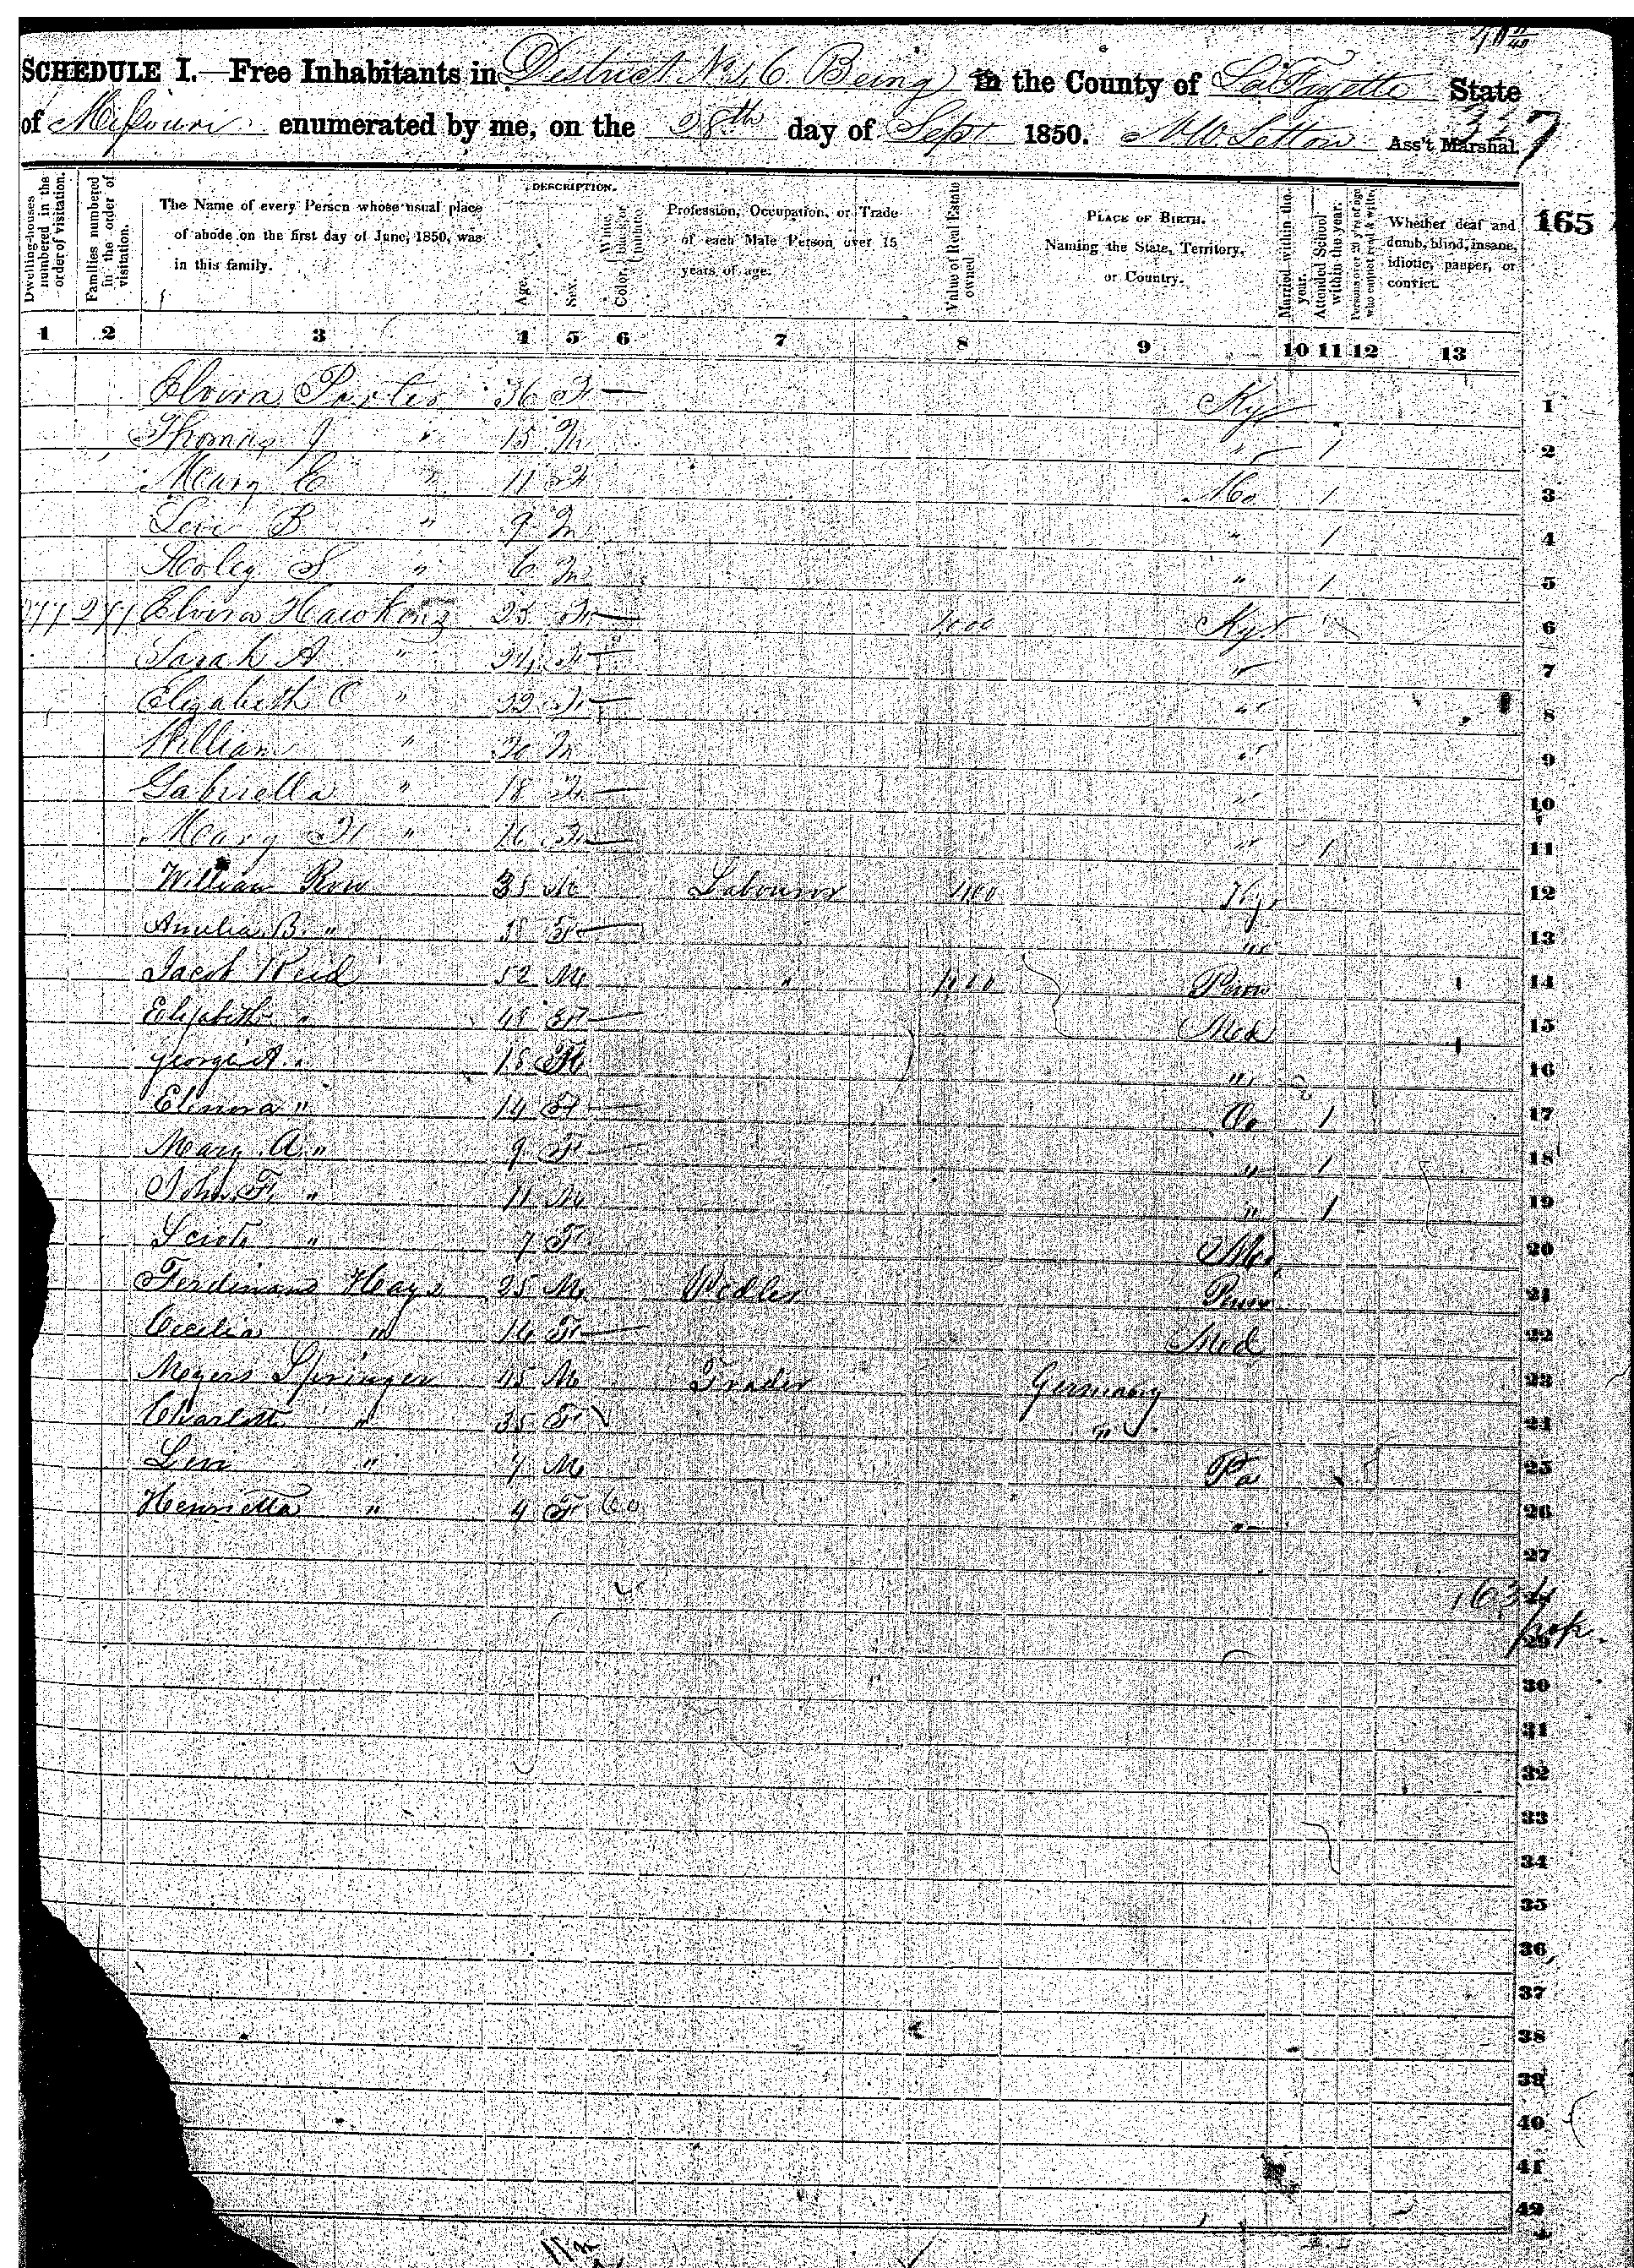 SCHEDULE I.—Free Inhabitants in District No 6. Being in the County of LaFayette State
of Missouri enumerated by me, on the 28th day of Sept 1850. Ass't Marshal.
165
Dwelling-houses numbered in the order of visitation.
Families numbered in the order of visitation.
The Name of every Person whose usual place of abode on the first day of June, 1850, was in this family.
DESCRIPTION.
Age.
Sex.
Color, White, black, or mulatto.
Profession, Occupation, or Trade of each Male Person over 15 years of age.
Value of Real Estate owned.
PLACE OF BIRTH. Naming the State, Territory, or Country.
Married within the year.
Attended School within the year.
Persons over 20 y'rs of age who cannot read & write.
Whether deaf and dumb, blind, insane, idiotic, pauper, or convict.
1 2 3 4 5 6 7 8 9 10 11 12 13
Elvira Porter 36 F Ky 1
Thomas J " 15 M " 1 2
Mary E " 11 F Mo 1 3
Levi B " 9 M " 1 4
S " 6 M " 1 5
277 277 Elvira Hawkins F Ky 6
Sarah A " 24 F " 7
Elizabeth C " 22 F " 8
William " 20 M " 9
Gabriella " 18 F " 10
Mary " 16 F " 1 11
William Row 35 M Labourer 400 Ky 12
Amelia B. " F " 13
Jacob Reid 52 M " Penn 14
Elizabeth " 48 F Md 15
George A. " 18 " 16
Elinora " 14 F 1 17
Mary A. " 9 F " 1 18
John F. " 11 M " 1 19
" 7 F Mo 20
Ferdinand Hays 25 M Pedler Penn 21
Cecilia " F Md 22
Meyers Springer 45 M Trader Germany 23
Charlotte " 35 F " 24
" 7 M Pa 25
Henrietta " 4 F " 26
27
29
30
31
32
33
34
35
36
37
38
39
40
41
42